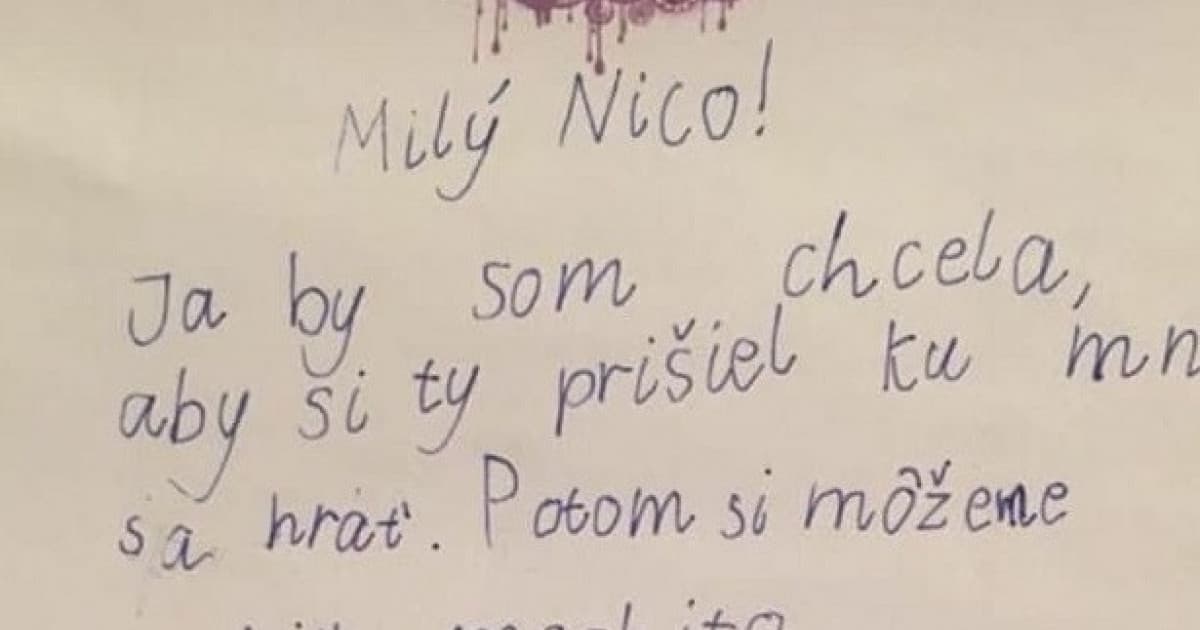 Milý Nico!
Ja by som chcela,
aby si ty prišiel ku mn
sa hrať. Potom si môžeme